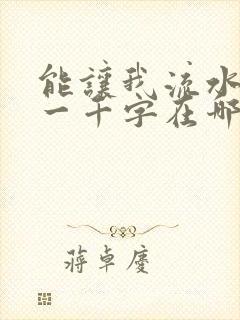 能讓我流水
一千字在哪
蔣卓慶